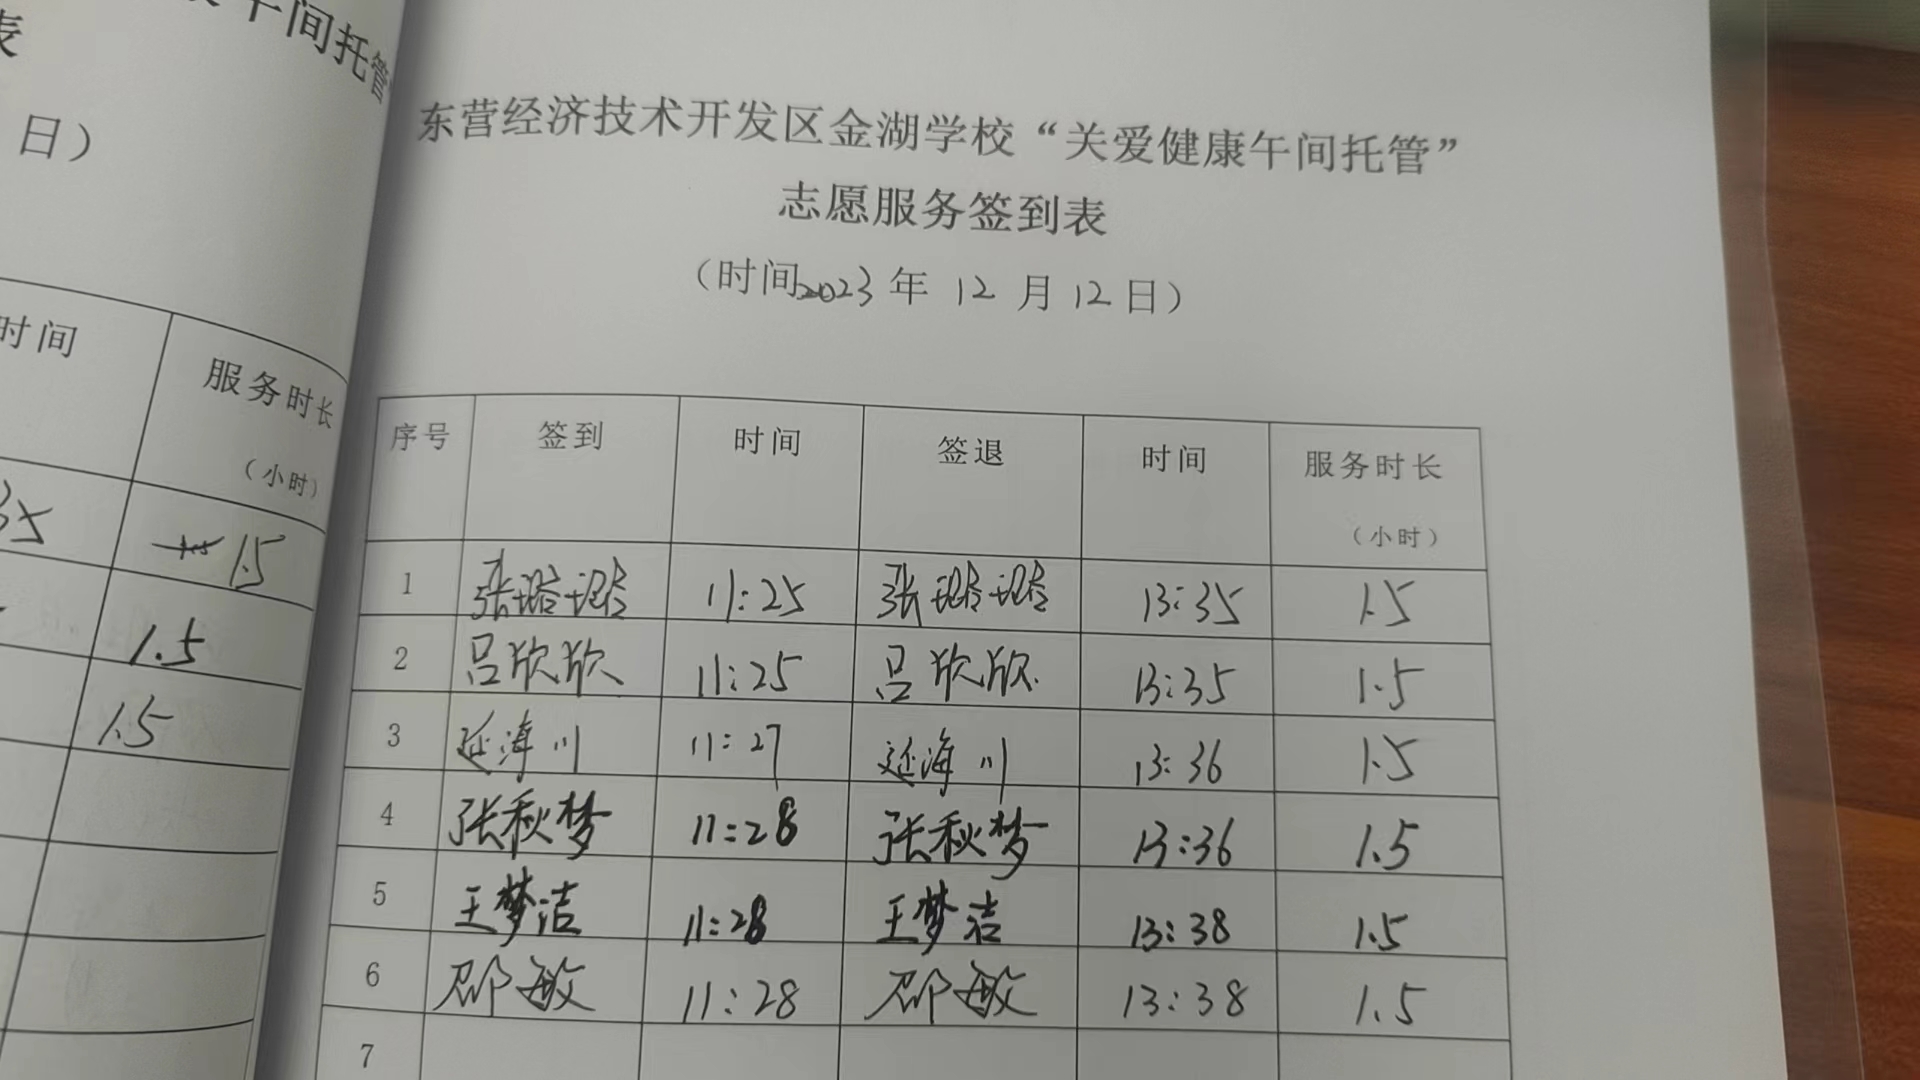 午间托管
表
日）
时间
服务时长
（小时）
35
1.5
1.5
1.5
东营经济技术开发区金湖学校“关爱健康午间托管”
志愿服务签到表
（时间2023年12月12日）
序号 签到 时间 签退 时间 服务时长
（小时）
1 张璐璐 11:25 张璐璐 13:35 1.5
2 吕欣欣 11:25 吕欣欣 13:35 1.5
3 延海川 11:27 延海川 13:36 1.5
4 张秋梦 11:28 张秋梦 13:36 1.5
5 王梦洁 11:28 王梦洁 13:38 1.5
6 邵敏 11:28 邵敏 13:38 1.5
7